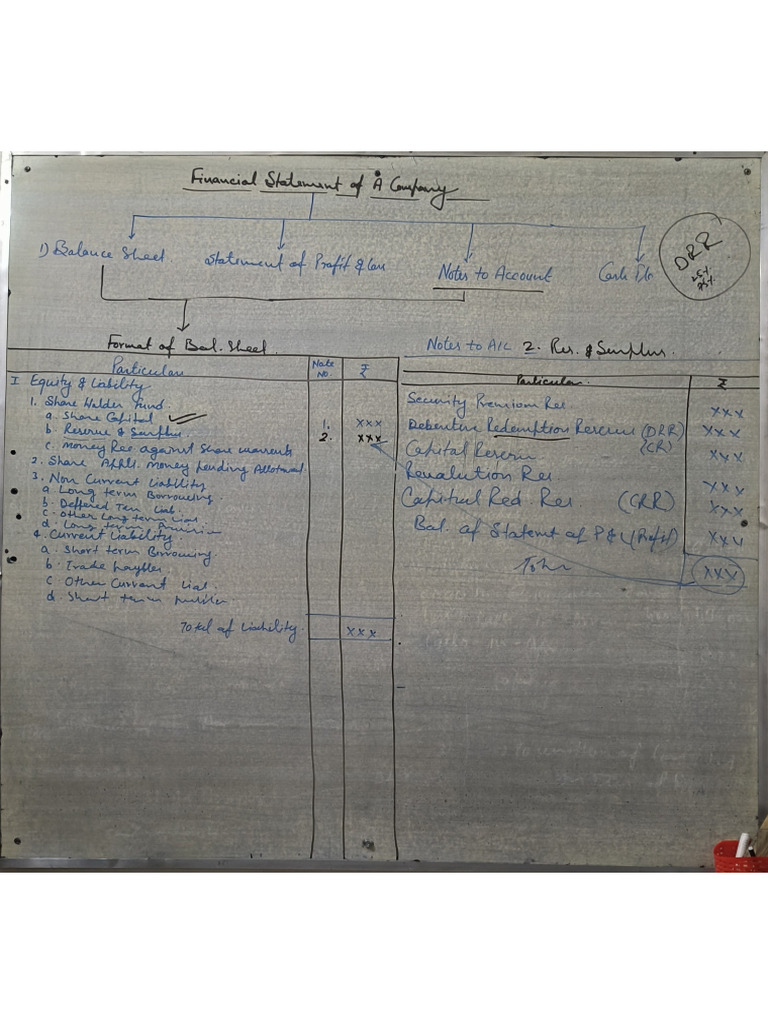 Financial Statement of A Company
1) Balance Sheet
Statement of Profit & Loss
Notes to Account
Cash Flo
DRR
25%
Format of Bal. Sheet.
Particular
Note No.
₹
I Equity & Liability
1. Share Holder Fund.
a. Share Capital
1.
xxx
b. Reserve & Surplus
2.
xxx
c. Money Rec against Share warrents
2. Share Appl. Money pending Allotment
3. Non Current Liability
a Long term Borrowing
b. Deffered Tax Liab.
c. Other Long term Liab.
d. Long term Provision
4. Current Liability.
a. Short term Borrowing
b. Trade payables
c Other Current Liab.
d. Short term
Total of Liability.
xxx
Notes to A/c 2. Res. & Surplus.
Particular.
₹
Security Premiom Res
xxx
Debenture Redemption Reserve (DRR)
xxx
Capital Reserve (CR)
xxx
Revalution Res
xxx
Capital Red. Res. (CRR)
xxx
Bal. of Statemt of P & L (Profit)
xxx
xxx